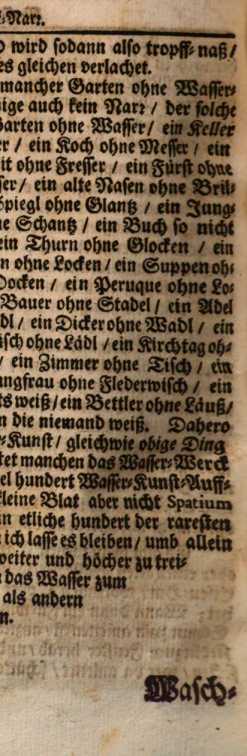 -Narr.
wird sodann also tropff-naß /
es gleichen verlachet.
mancher Garten ohne Wasser-
ige auch kein Narr / der solche
arten ohne Wasser / ein Keller
er / ein Koch ohne Messer / ein
it ohne Fresser / ein Fürst ohne
ser / ein alte Nasen ohne Bril-
piegl ohne Glantz / ein Jung-
ne Schantz / ein Buch so nicht
ein Thurn ohne Glocken / ein
n ohne Locken / ein Suppen oh-
Docken / ein Peruque ohne Lo-
Bauer ohne Stadel / ein Adel
dl / ein Dicker ohne Wadl / ein
isch ohne Lädl / ein Kirchtag oh-
/ ein Zimmer ohne Tisch / ein
ungfrau ohne Flederwisch / ein
ts weiß / ein Bettler ohne Läuß /
n die niemand weiß. Dahero
r-Kunst / gleichwie obige Ding
tet manchen das Wasser-Werck
el hundert Wasser-Kunst-Auff-
kleine Blat aber nicht Spatium
n etliche hundert der raresten
ich lasse es bleiben / umb allein
weiter und höcher zu trei-
das Wasser zum
als andern
n.
Wasch-